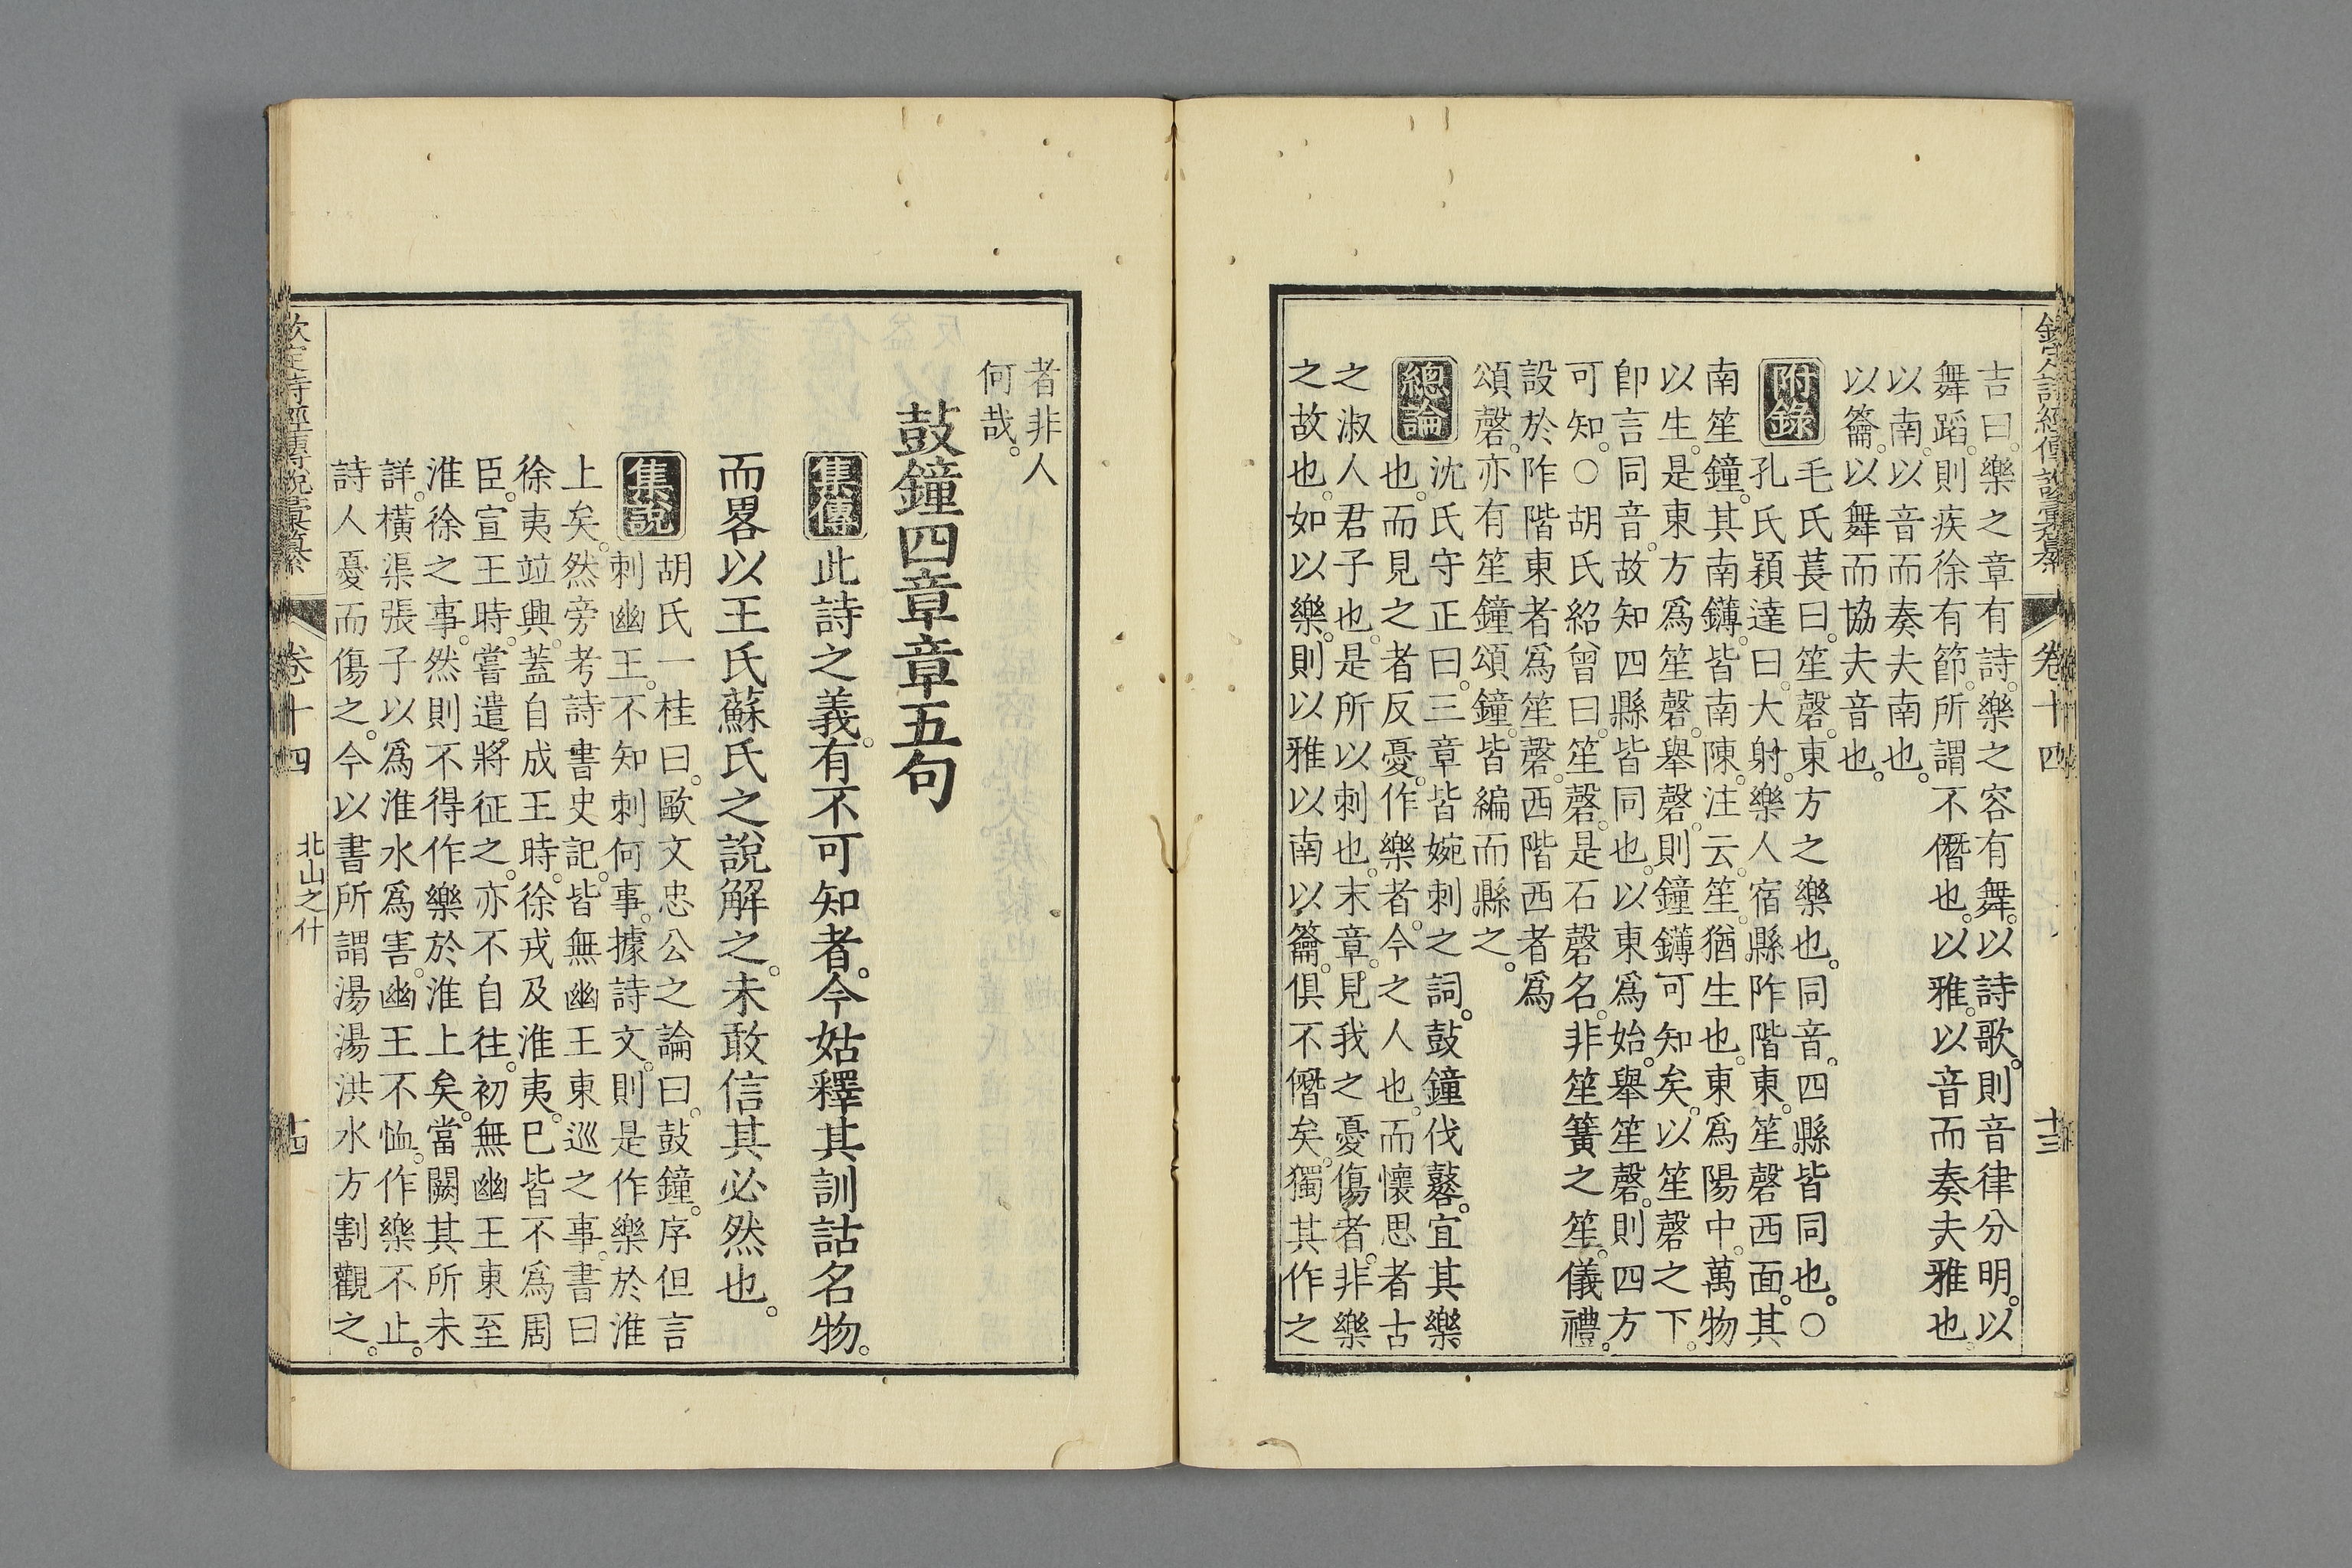 欽定詩經傳說彙纂 卷十四 十三
吉曰。樂之章有詩。樂之容有舞。以詩歌。則音律分明。以
舞蹈。則疾徐有節。所謂不僭也。以雅。以音而奏夫雅也。
以南。以音而奏夫南也。
以籥。以舞而協夫音也。
附錄
毛氏萇曰。笙磬。東方之樂也。同音。四縣皆同也。○
孔氏穎達曰。大射。樂人宿縣阼階東。笙磬西面。其
南笙鐘。其南鑮。皆南陳。注云。笙。猶生也。東爲陽中。萬物
以生。是東方爲笙磬。舉磬。則鐘鑮可知矣。以笙磬之下。
卽言同音。故知四縣皆同也。以東爲始。舉笙磬。則四方
可知。○胡氏紹曾曰。笙磬。是石磬名。非笙簧之笙。儀禮。
設於阼階東者爲笙磬。西階西者爲
頌磬。亦有笙鐘頌鐘。皆編而縣之。
總論
沈氏守正曰。三章皆婉刺之詞。鼓鐘伐鼛。宜其樂
也。而見之者反憂。作樂者。今之人也。而懷思者古
之淑人君子也。是所以刺也。末章。見我之憂傷者。非樂
之故也。如以樂。則以雅以南以籥。俱不僭矣。獨其作之
者非人
何哉。
鼓鐘四章章五句
集傳
此詩之義。有不可知者。今姑釋其訓詁名物。
而畧以王氏蘇氏之說解之。未敢信其必然也。
集說
胡氏一桂曰。歐文忠公之論曰。鼓鐘。序但言
刺幽王。不知刺何事。據詩文。則是作樂於淮
上矣。然旁考詩書史記。皆無幽王東巡之事。書曰
徐夷竝興。蓋自成王時。徐戎及淮夷。已皆不爲周
臣。宣王時。嘗遣將征之。亦不自往。初無幽王東至
淮徐之事。然則不得作樂於淮上矣。當闕其所未
詳。橫渠張子以爲淮水爲害。幽王不恤。作樂不止。
詩人憂而傷之。今以書所謂湯湯洪水方割觀之。
欽定詩經傳說彙纂 卷十四 北山之什 十四